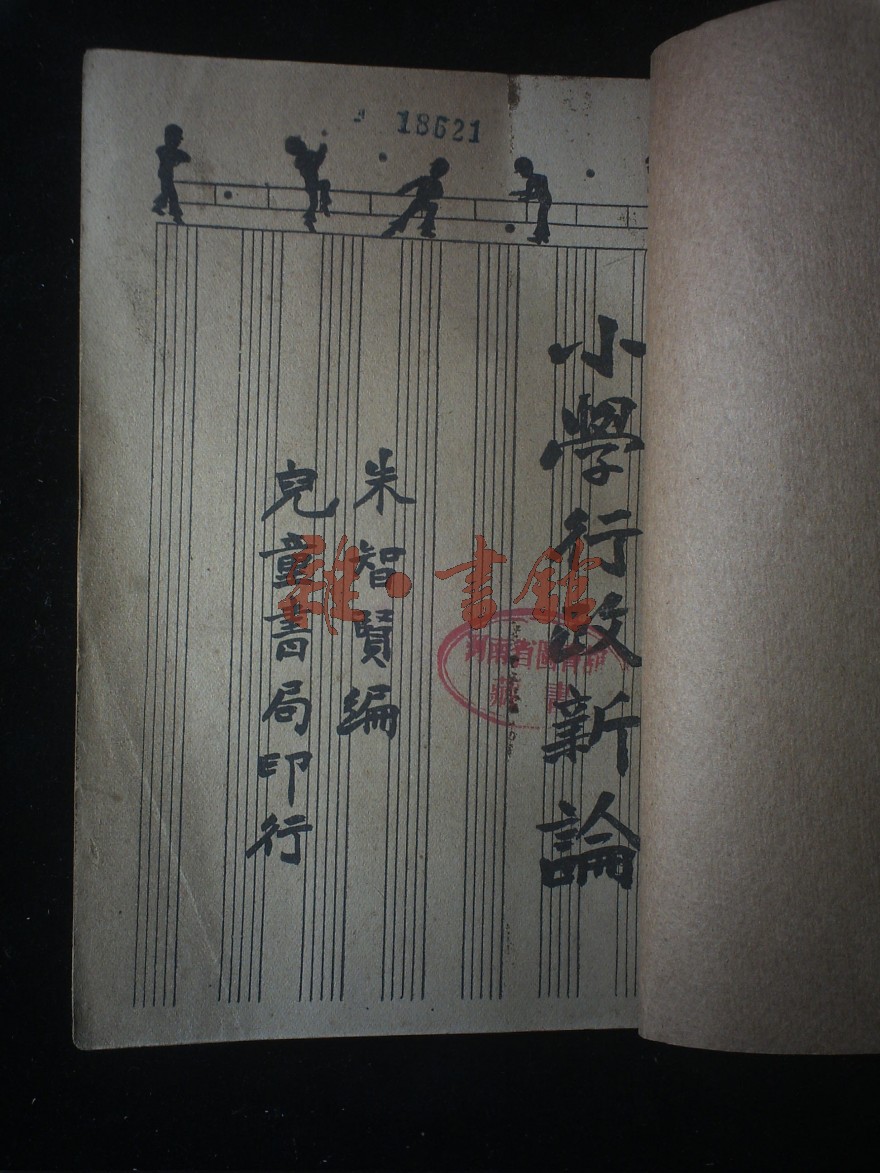 18621
小學行政新論
朱智賢編
兒童書局印行
雜·書館
河南省圖書館
藏書